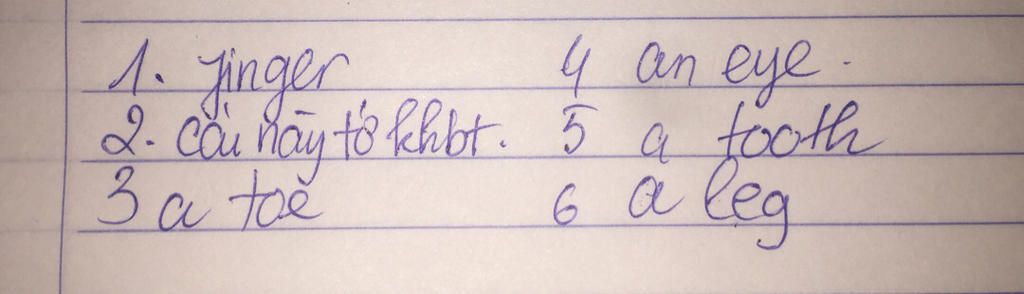 1. finger
2. cái này tớ khbt.
3 a toe
4 an eye.
5 a tooth
6 a leg